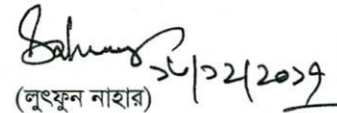 ১৮/১২/২০১৭
(লুৎফুন নাহার)